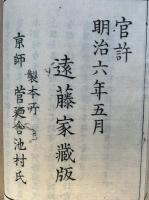 官許
明治六年五月
遠藤家藏版
製本所
京師 菅廼舎池村氏